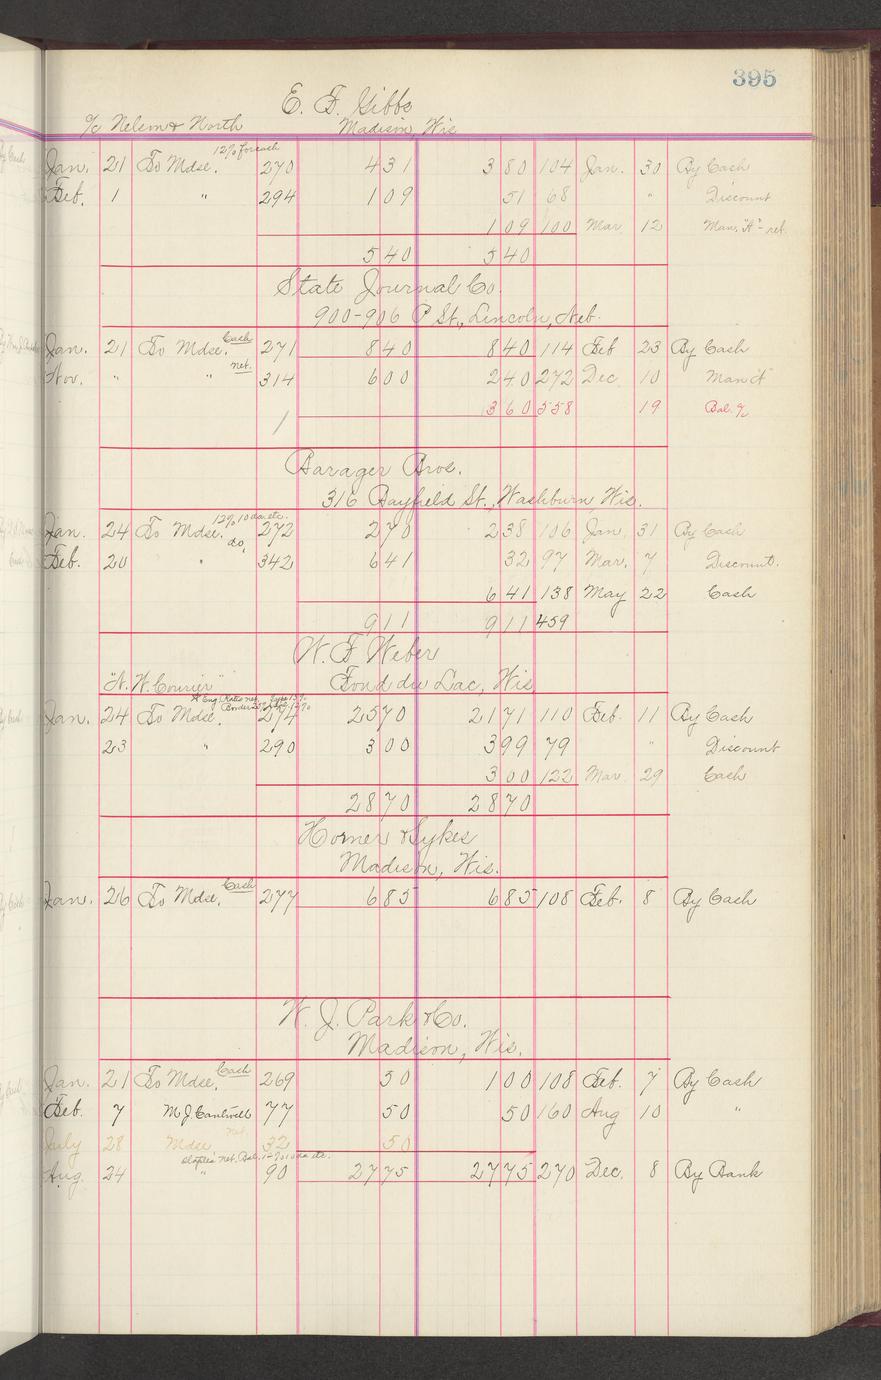 395
E. F. Gibbs
% Nelson & North Madison, Wis
12% for cash
Jan. 21 To Mdse. 270 431 380 104 Jan. 30 By Cash
Feb. 1 " 294 109 51 68 " Discount
109 100 Mar. 12 Man. "A" - ret.
540 540
State Journal Co.
900-906 P St., Lincoln, Neb.
Jan. 21 To Mdse. Cash 271 840 840 114 Feb 23 By Cash
Nov. " " net. 314 600 240 272 Dec. 10 Man "A"
360 558 19 Bal. %
Barager Bros.
316 Bayfield St., Washburn, Wis.
12% 10 da etc.
Jan. 24 To Mdse. 272 270 238 106 Jan. 31 By Cash
Feb. 20 " do. 342 641 32 97 Mar. 7 Discount.
641 138 May 22 Cash
911 911 459
W. F. Weber
"N. W. Courier" Fond du Lac, Wis
Jan. 24 To Mdse. 274 2570 2171 110 Feb. 11 By Cash
23 " 290 300 399 79 " Discount
300 122 Mar 29 Cash
2870 2870
Horner & Sykes
Madison, Wis.
Jan. 26 To Mdse. Cash 277 685 685 108 Feb. 8 By Cash
W. J. Park & Co.
Madison, Wis.
Jan. 21 To Mdse. Cash 269 50 100 108 Feb. 7 By Cash
Feb. 7 M. J. Cantwell 77 50 50 160 Aug 10 "
July 28 Mdse net. 32 50
Staples net. Bal. 12% 10 da etc.
Aug. 24 " 90 2775 2775 270 Dec. 8 By Bank